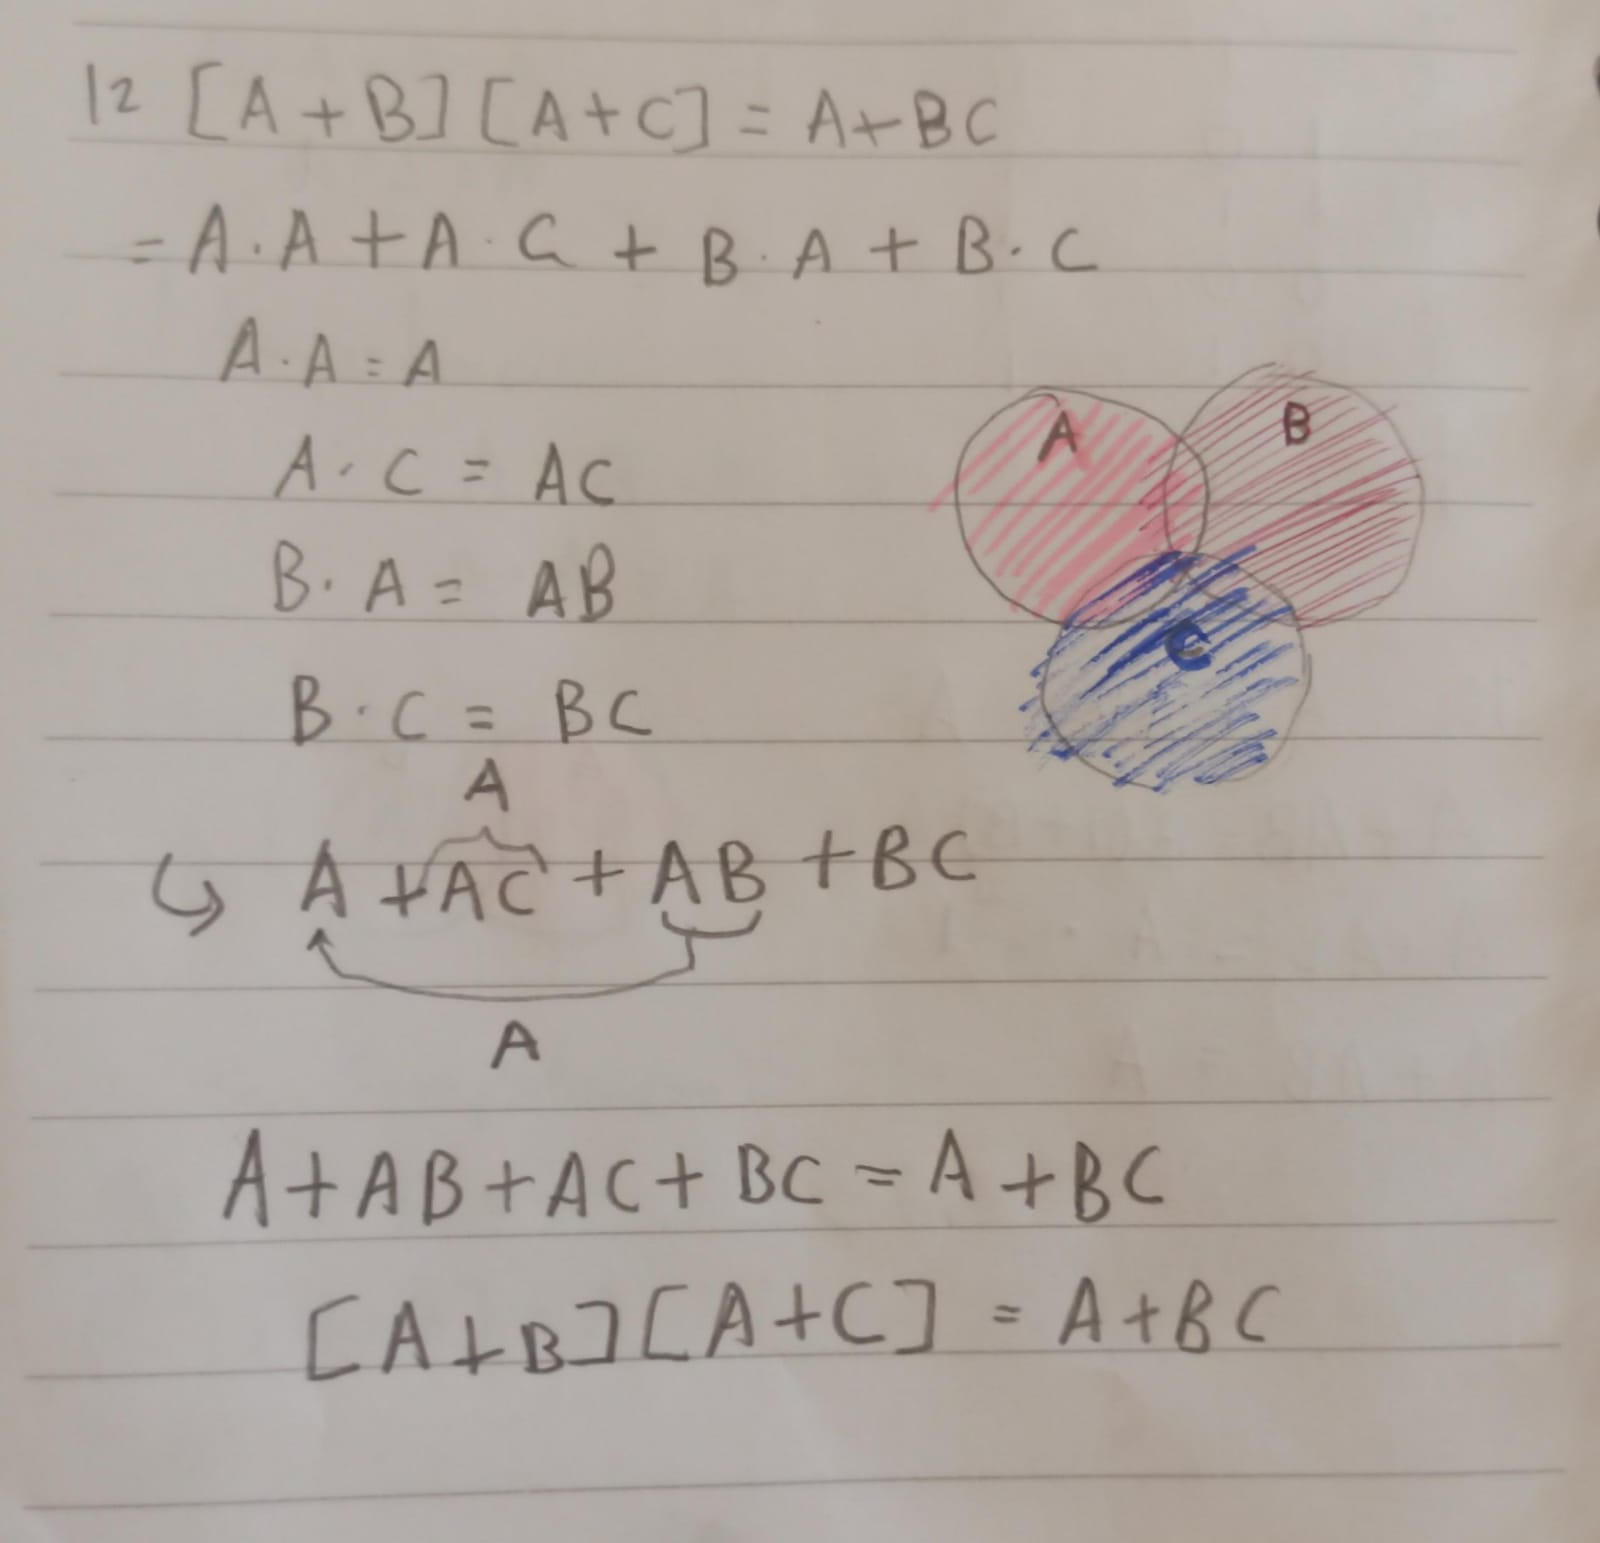 12 [A + B] [A + C] = A + BC
= A · A + A · C + B · A + B · C
A · A = A
A · C = AC
B · A = AB
B · C = BC
A
B
C
A
↳ A + AC + AB + BC
A
A + AB + AC + BC = A + BC
[A + B] [A + C] = A + BC